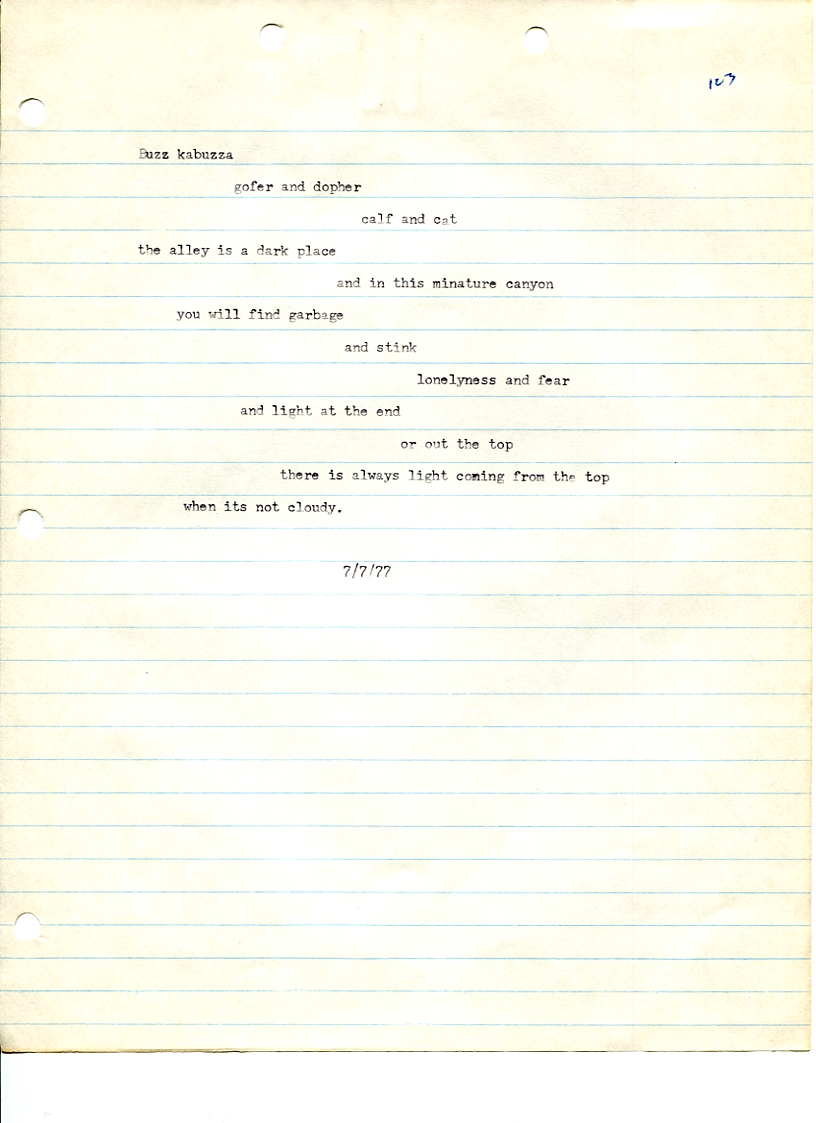 103
Buzz kabuzza
gofer and dopher
calf and cat
the alley is a dark place
and in this minature canyon
you will find garbage
and stink
lonelyness and fear
and light at the end
or out the top
there is always light coming from the top
when its not cloudy.
7/7/77